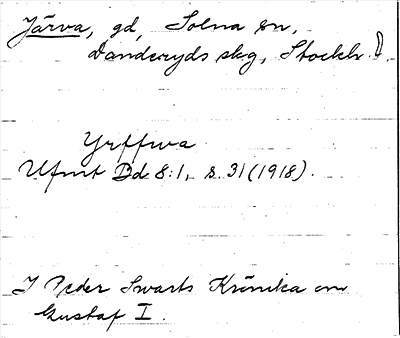 Järva, gd, Solna sn,
Danderyds skg, Stockh.
Yrffwa
Ufmt Dd 8:1, s. 31 (1918).
I Peder Swarts Krönika om
Gustaf I.